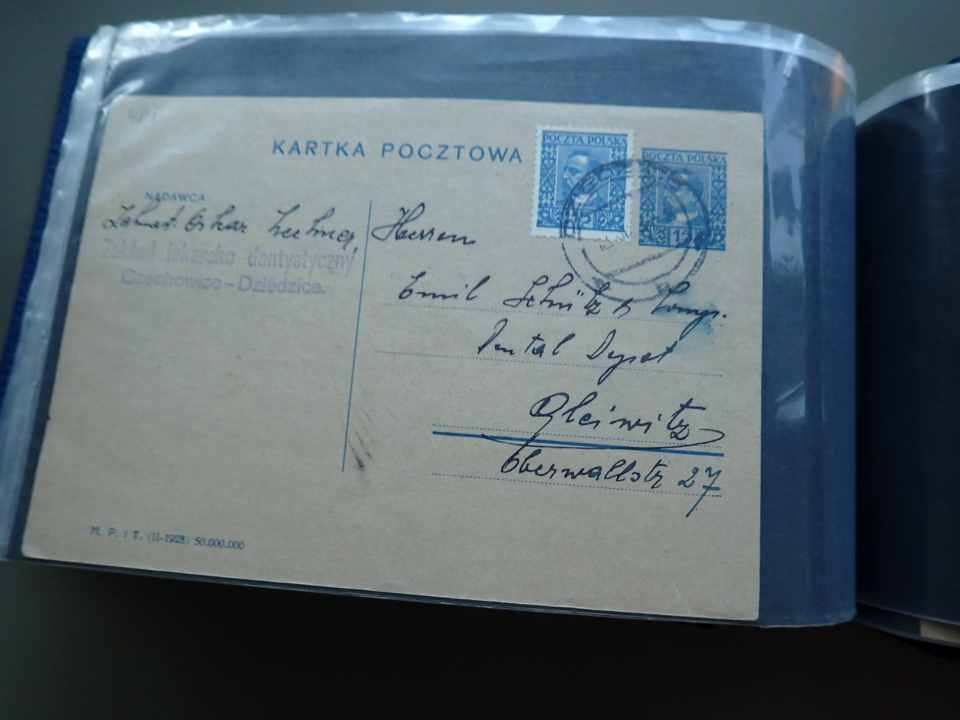 KARTKA POCZTOWA
POCZTA POLSKA
5
POCZTA POLSKA
NADAWCA
Oskar
Zakład lekarsko dentystyczny
Czechowice - Dziedzice.
Herren
Emil Schütz & Comp.
Dental Depot
Gleiwitz
Oberwallstr 27
M. P. i T. (II-1928) 50.000.000